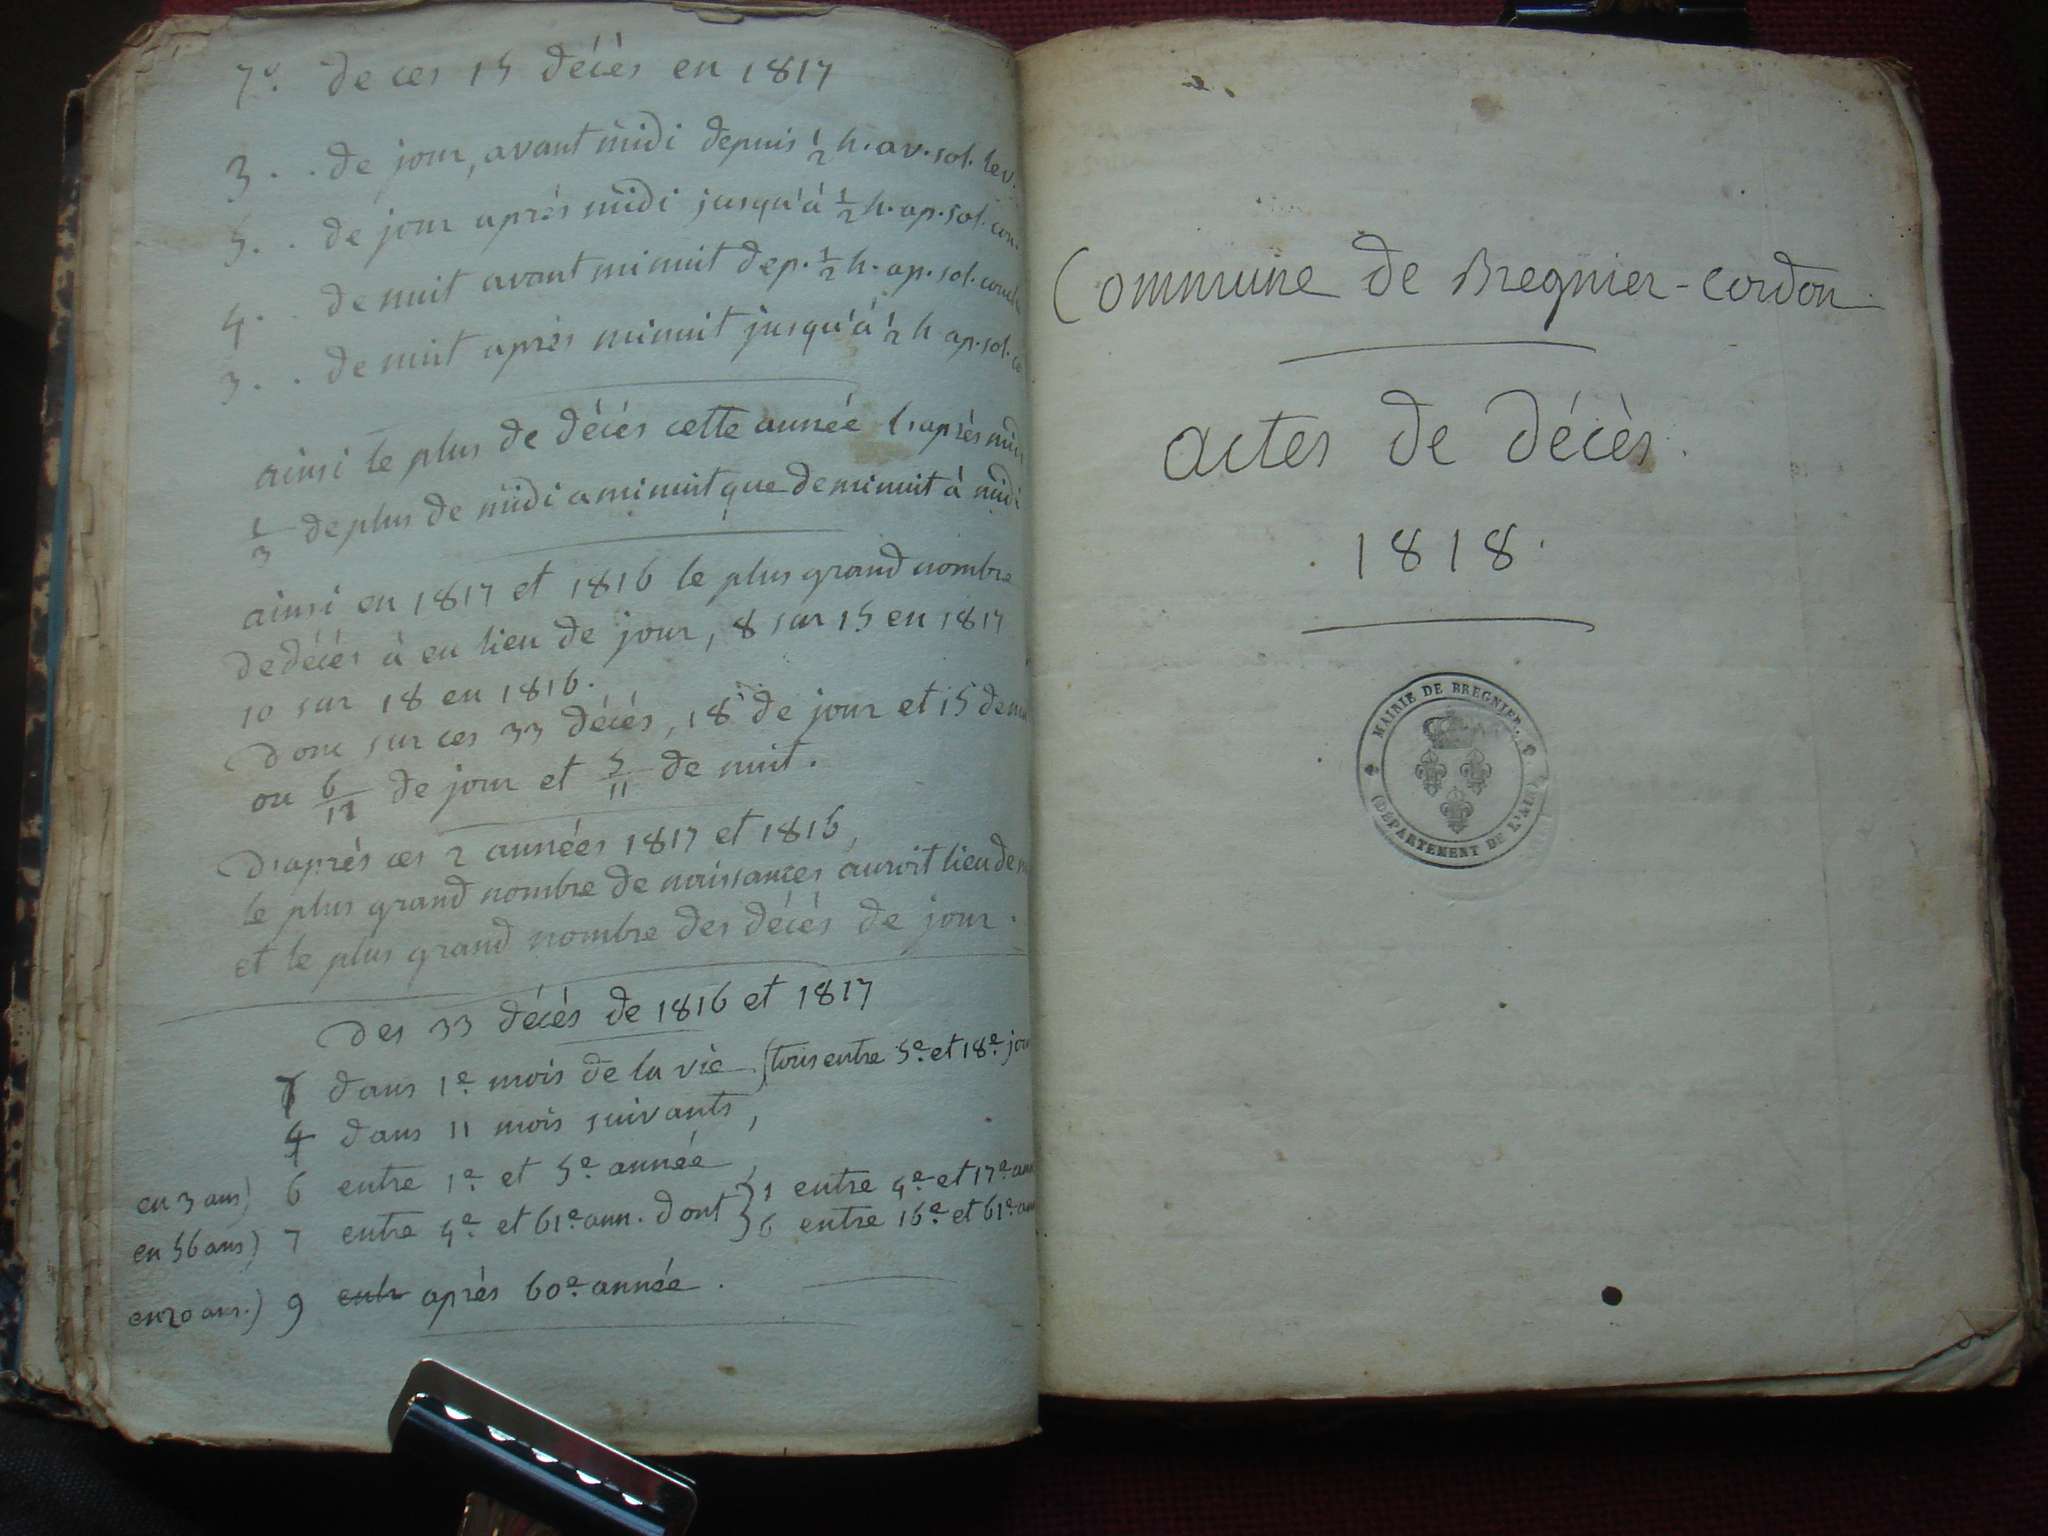 7° de ces 15 décès en 1817
3 . . de jour, avant midi depuis 1/2 h. av. sol. lev.
5 . . de jour après midi jusqu'à 1/2 h. ap. sol. cou.
4 . . de nuit avant minuit dep. 1/2 h. ap. sol. couch
3 . . de nuit après minuit jusqu'à 1/2 h ap. sol.
ainsi le plus de décès cette année l'après midi
1/3 de plus de midi a minuit que de minuit à midi
ainsi en 1817 et 1816 le plus grand nombre
de décès à eu lieu de jour, 8 sur 15 en 1817
10 sur 18 en 1816.
donc sur ces 33 décès, 18 de jour et 15 de nu
ou 6/11 de jour et 5/11 de nuit.
d'après ces 2 années 1817 et 1816,
le plus grand nombre de naissances auroit lieu de
et le plus grand nombre des décès de jour.
des 33 décès de 1816 et 1817
7 dans 1e mois de la vie (tous entre 5e et 18e jou
4 dans 11 mois suivants,
en 3 ans) 6 entre 1e et 5e année,
en 56 ans) 7 entre 4e et 61e ann. dont } 1 entre 4e et 17e ann
6 entre 16e et 61e ann
en 20 ans.) 9 entr après 60e année.
Commune de Bregnier-Cordon.
actes de décès.
. 1818.
MAIRIE DE BREGNIER.
(DÉPARTEMENT DE L'AIN)